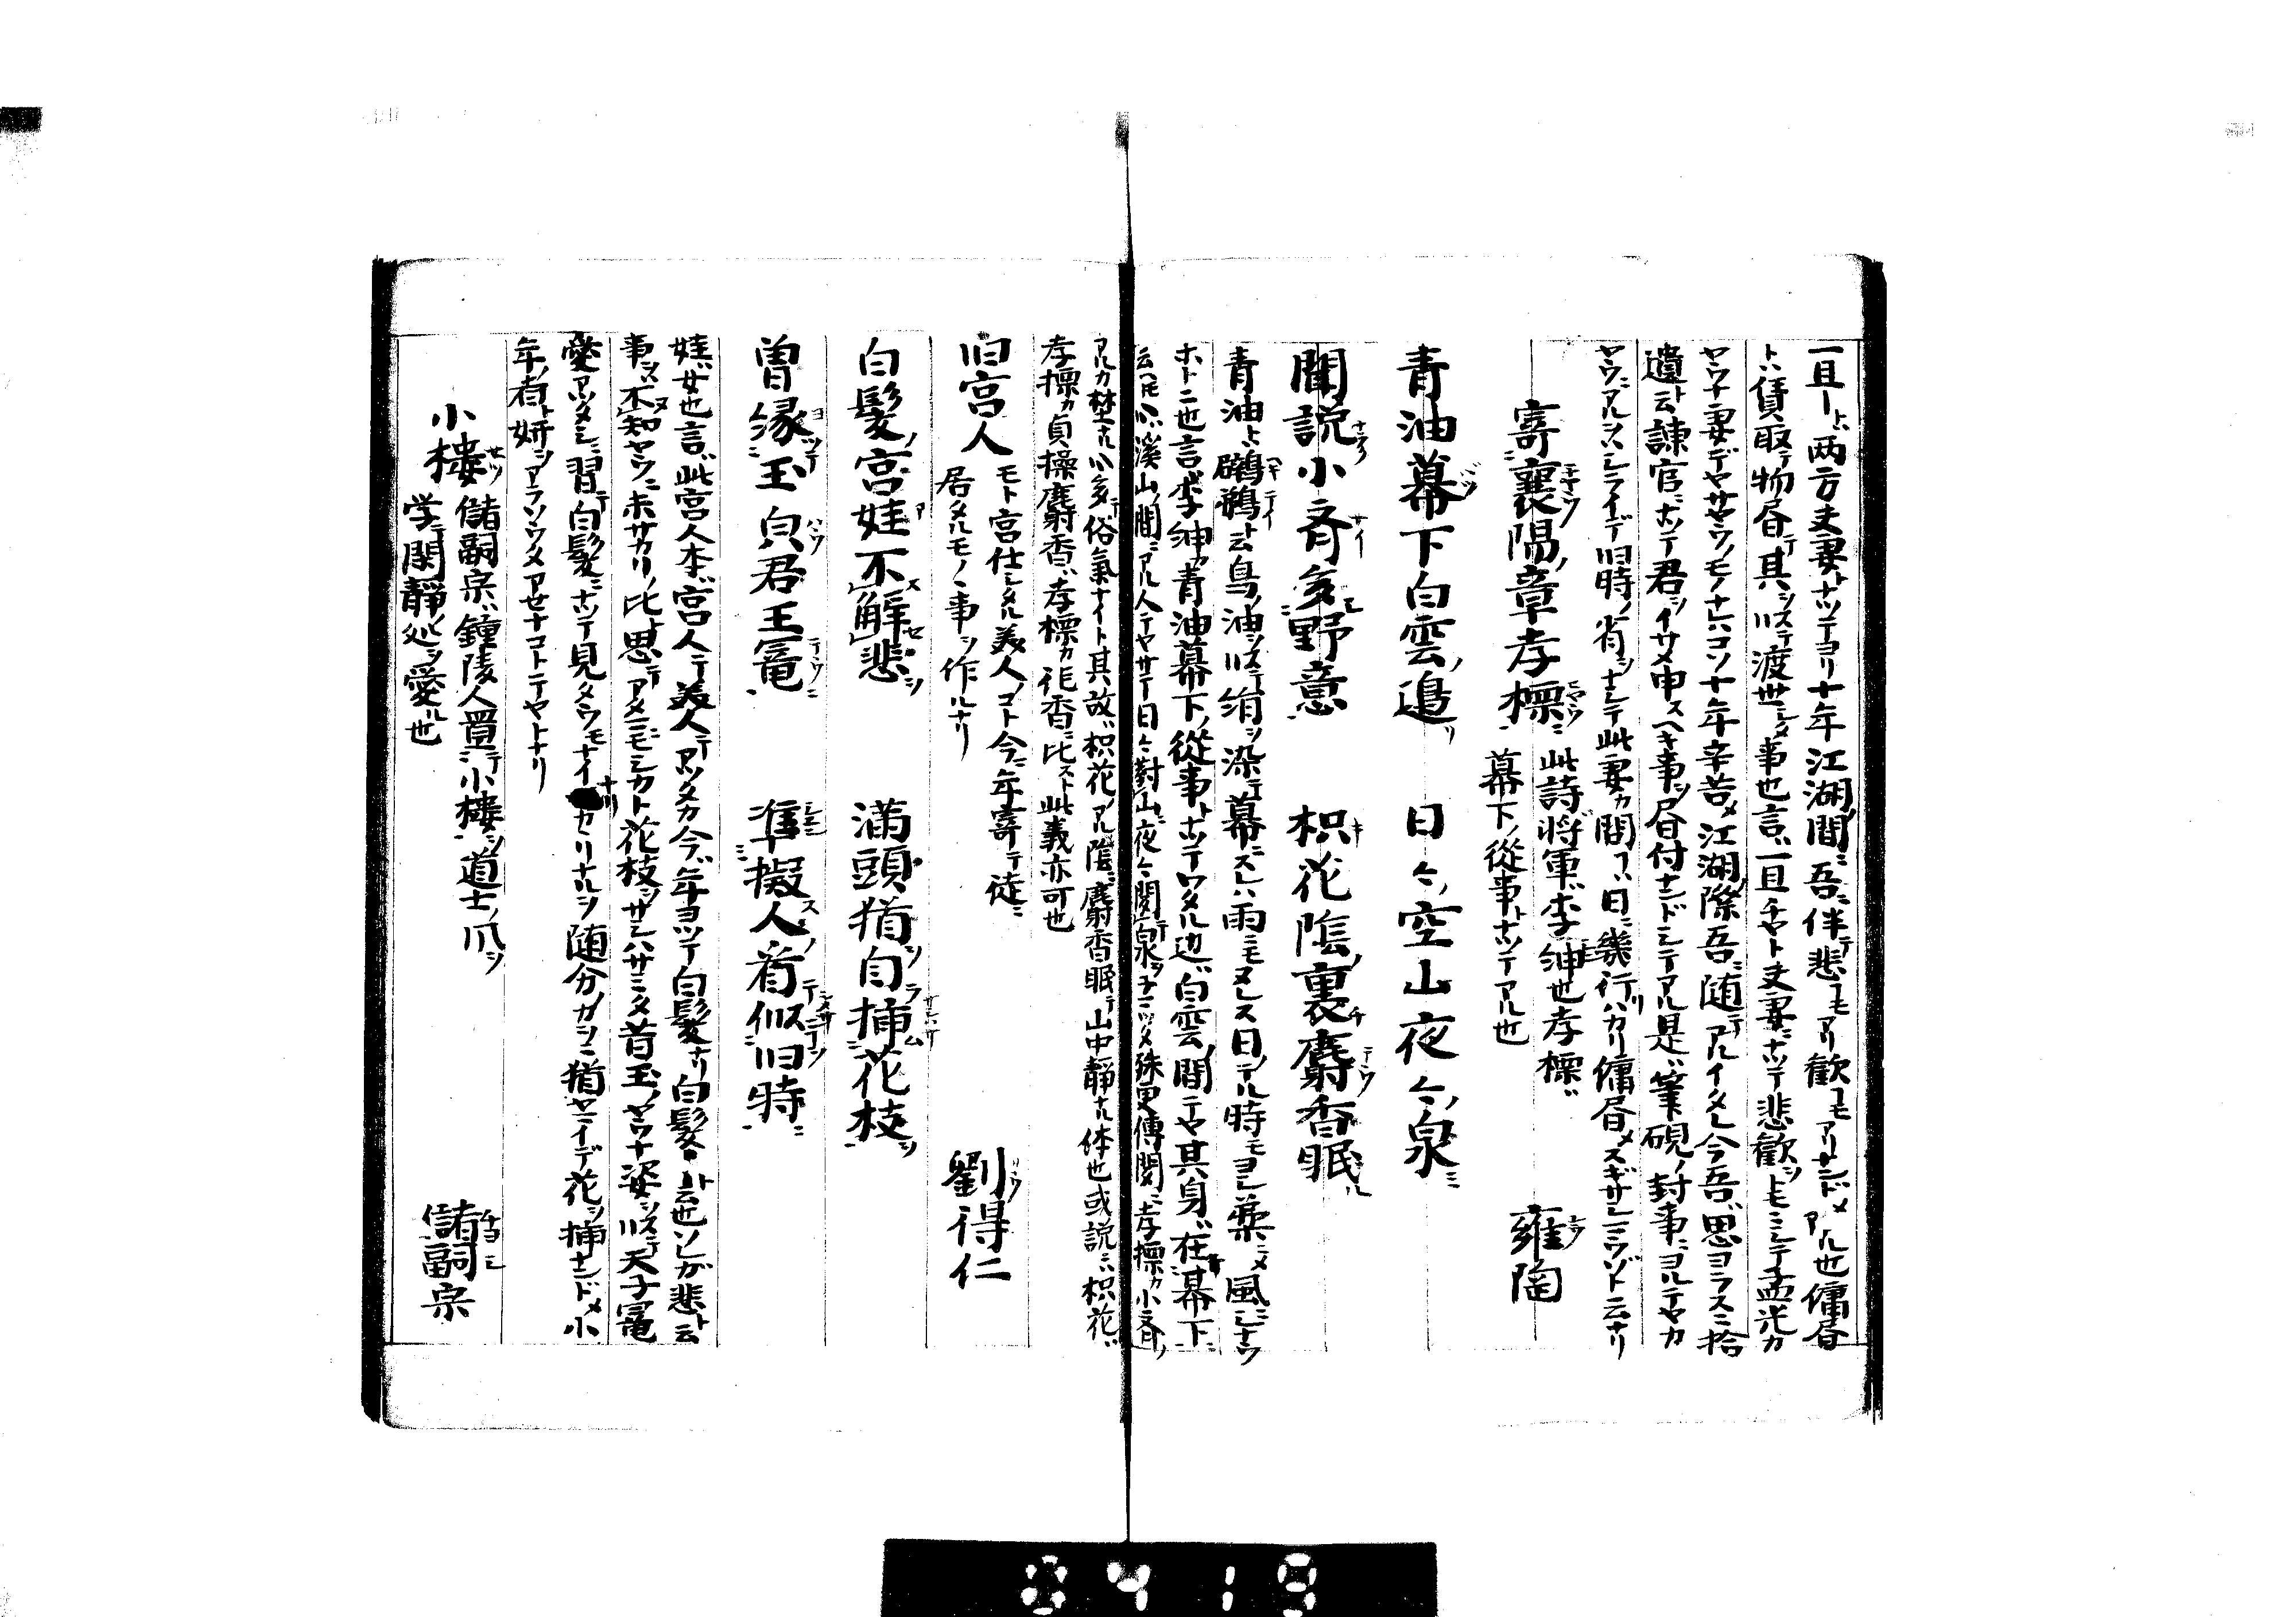 一旦トハ両方夫妻トナツテヨリ十年江湖ノ間ニ吾ニ伴テ悲コモアリ歓コモアリナンドメアル也傭昏
トハ賃取テ物昏テ其ヲ以テ渡世シタ事也言ハ一旦チヤト夫妻ニナツテ悲歓ヲトモニシテ孟光カ
ヤウナ妻デヤサウノモノナレハコソ十年辛苦メ江湖ノ際吾ニ随テアルイタレ今吾ハ思ヨラスニ拾
遺ト云諫官ニナツテ君ヲイサメ申スヘキ事ヲ昏付ナンドシテアル是ハ筆硯ノ封事ニヨルテヤカ
旧時ノ省ヲナシテ此妻カ間フハ日ニ幾行ハカリ傭昏メスギサレシゾト云ナリ
寄襄陽章孝標 此詩将軍ハ李紳也孝標ハ 雍陶
幕下ノ從事トナツテアル也
青油幕下白雲邉 日々空山夜々泉
聞説小斉多野意 枳花陰裏麝香眠
青油トハ鸊鵜ト云鳥ノ油ヲ以テ絹ヲ染テ幕ニスレハ雨ニモヌレス日ノテル時モヨシ
ホトニ也言ハ李紳カ青油幕下ノ從事トナツテワタル辺ハ白雲ノ間テヤ其身ハ在幕下ニ
アルカ埜ナル心多テ俗氣ナイト其故ハ枳花ノアル陰ニ麝香眠テ山中静ナル体也或説ニハ枳花ハ
孝標カ貞操麝香ハ孝標カ花香ニ比スト此義亦可也
旧宮人 モト宮仕シタル美人ノコト今ハ年寄テ徒ニ 劉得仁
居タルモノヽ事ヲ作ルナリ
白髪宮娃不解悲 満頭猶自挿花枝
曽縁玉皃君王寵 準擬人看似旧時
娃ハ女也言ハ此宮人本ハ宮人テ美人テアツタカ今ハ年ヨツテ白髪ナリ白髪トハ云也ソレガ悲ト云
事ヲハ不知ヤウニ未サカリノ比ト思テ花枝ヲサシハサミタ昔玉ノヤウナ姿ヲ以テ天子寵
愛アツタニ習テ白髪ニナツテ見タウモナイナリカヽリナルヲ随分ノカヲニ猶ヤニイデ花ヲ挿ナンドメ小
年ノ者ト妍ヲアラソウタアセナコトテヤトナリ
小樓 儲嗣宗ハ鐘陵人置テ小樓ヲ道士ノ爪ヲ 儲嗣宗
学テ閑静ノ処ヲ愛ル也